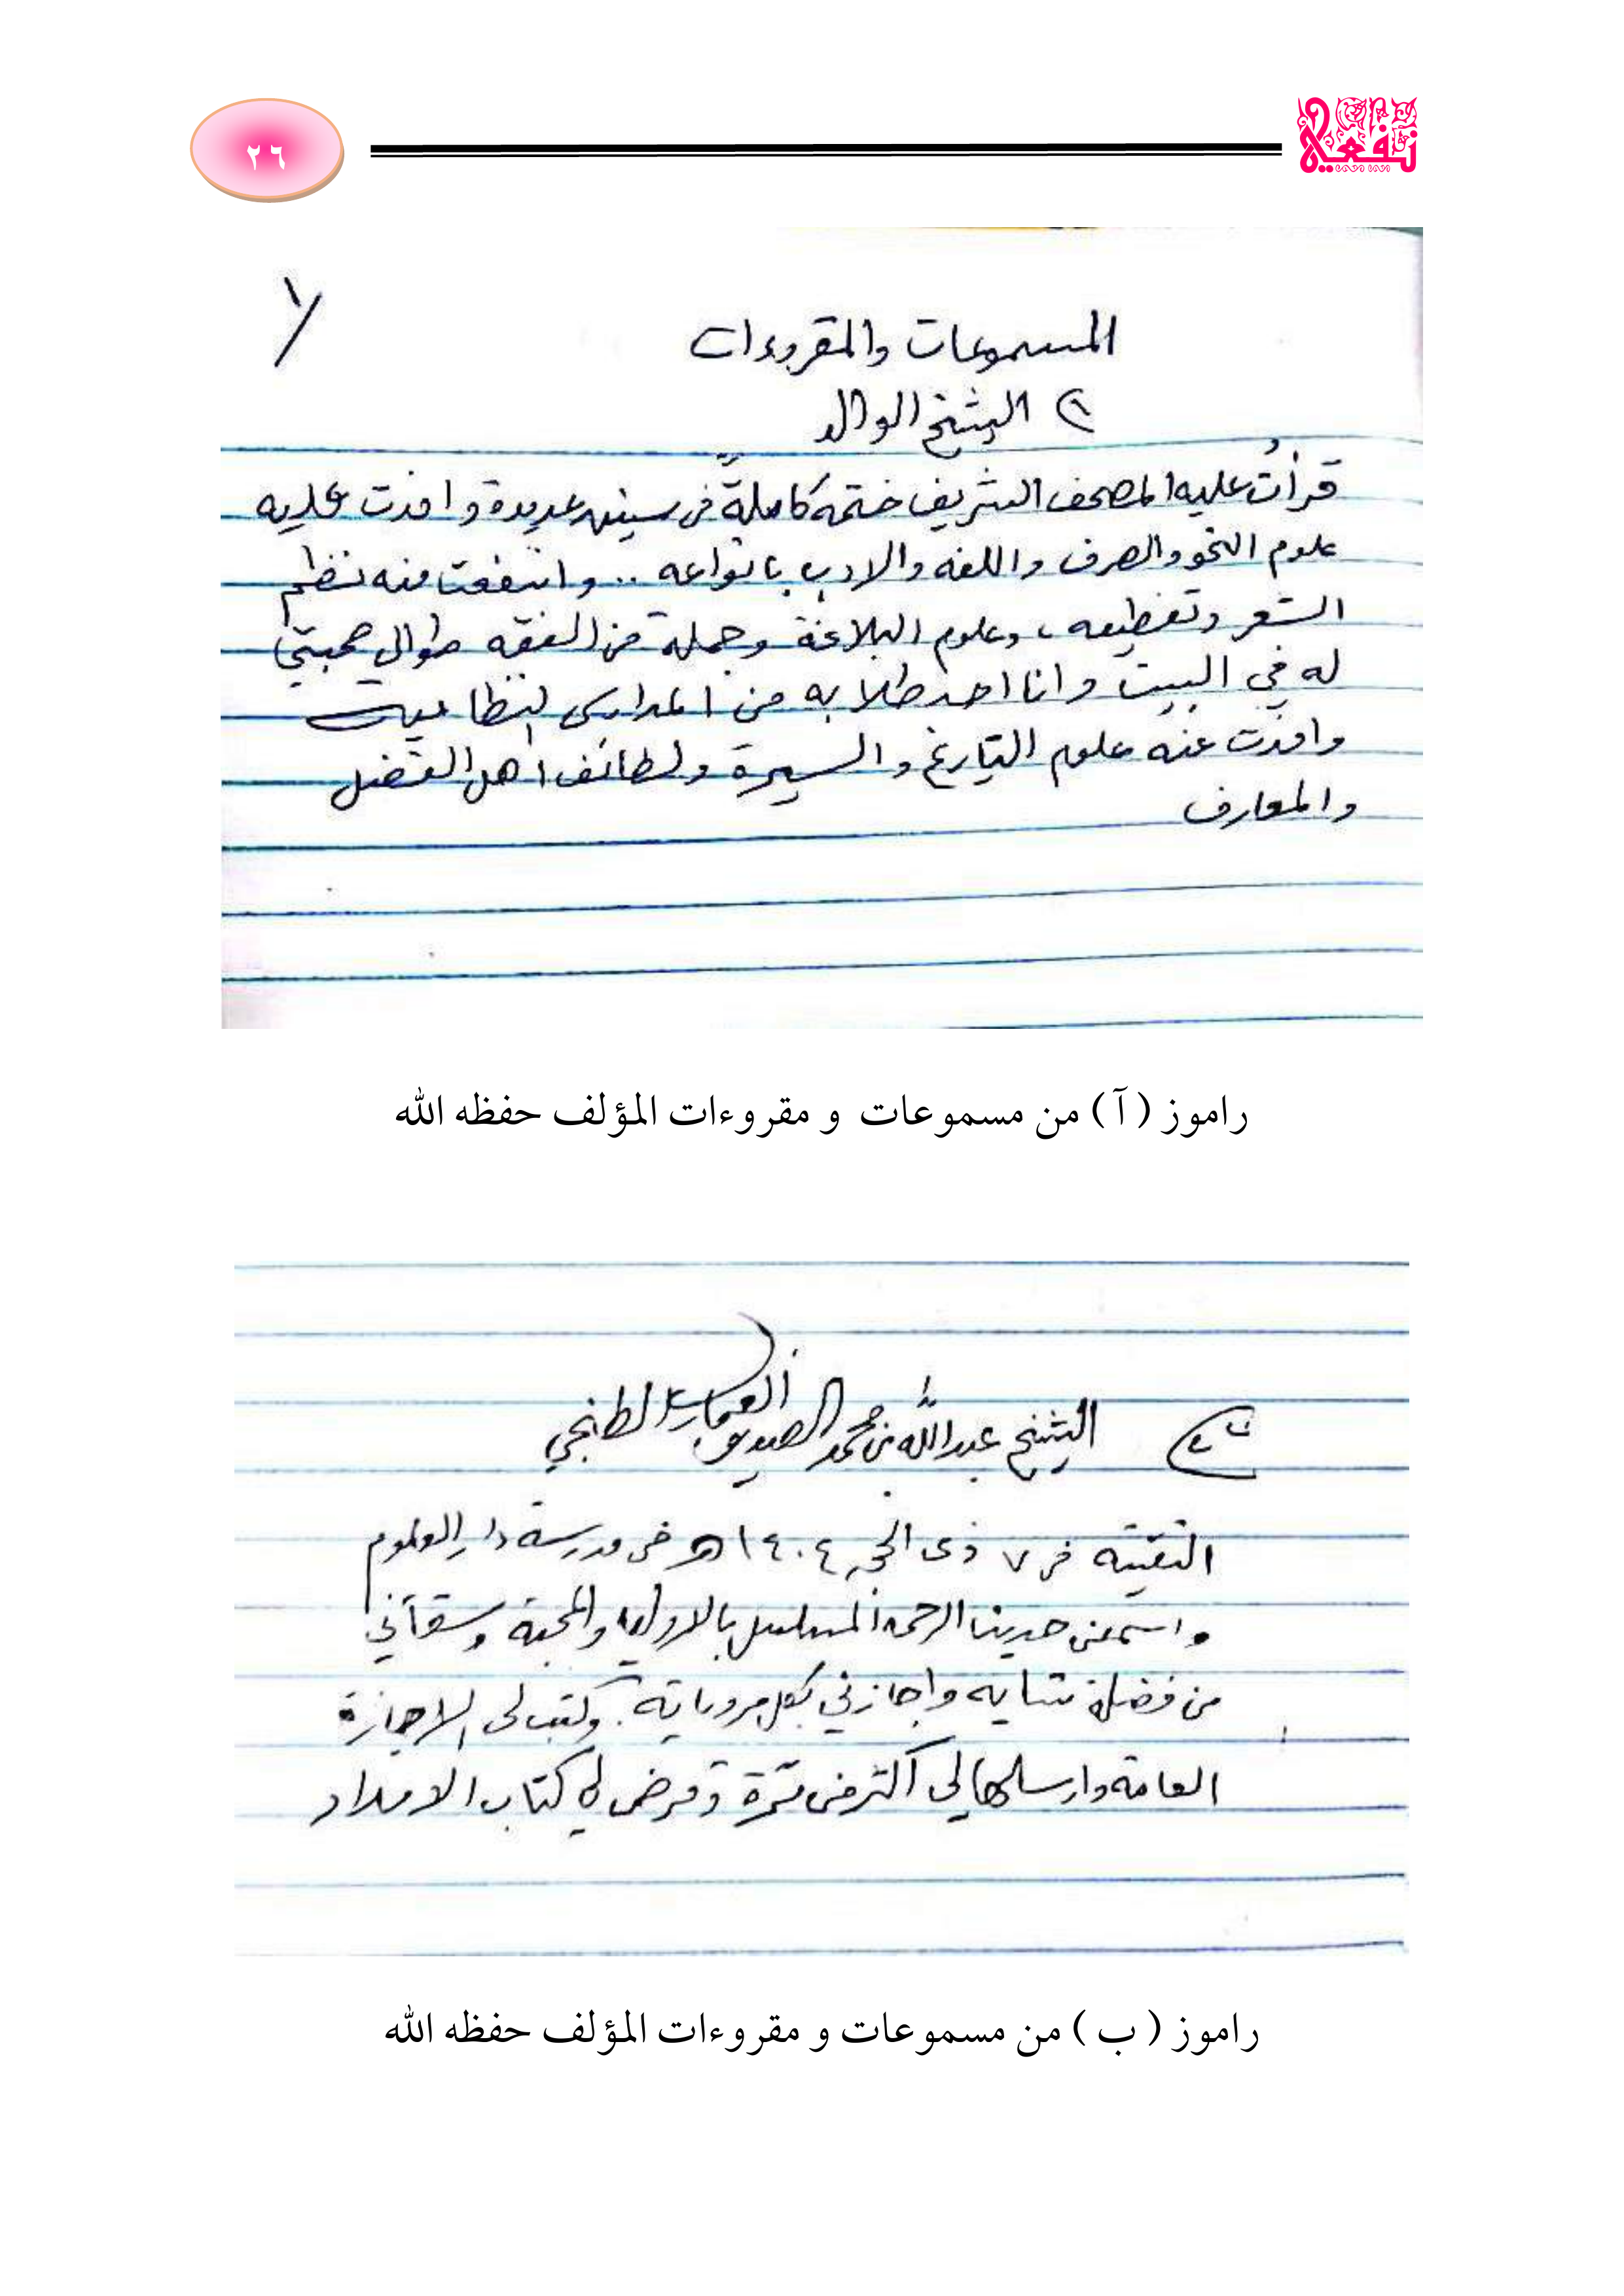 ٢٦
المسموعات والمقروءات
١) الشيخ الوالد
قرأتُ عليه المصحف الشريف ختمة كاملةً في سنين عديدة واخذت عليه
علوم النحو والصرف واللغه والادب بانواعه .. وانتفعت منه نظم
الشعر وتقطيعه، وعلوم البلاغة وجملة من الفقه طوال صحبتي
له في البيت وانا احد طلابه من المدارس النظاميه
واخذت عنه علوم التاريخ والسيرة ولطائف اهل الفضل
والمعارف
راموز (آ) من مسموعات و مقروءات المؤلف حفظه الله
الشيخ عبدالله بن محمد الصديق الغماري الطنجي
التقيته في ٧ ذى الحجه ١٤٠٤هـ في مدرسة دار العلوم
واسمعني حديث الرحمه المسلسل بالاوليه والمحبة وسقاني
من فضلة شايه واجازني بكل مروياته. وكتب لى الاجازة
العامة وارسلها لي اكثر من مرة وقرض لي كتاب الامداد
راموز (ب) من مسموعات و مقروءات المؤلف حفظه الله